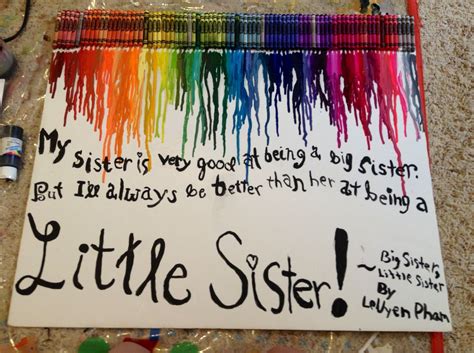 My sister is very good at being a big sister.
But I'll always be better than her at being a
Little Sister!
~ Big Sisters
Little Sister
By
LeUyen Pham